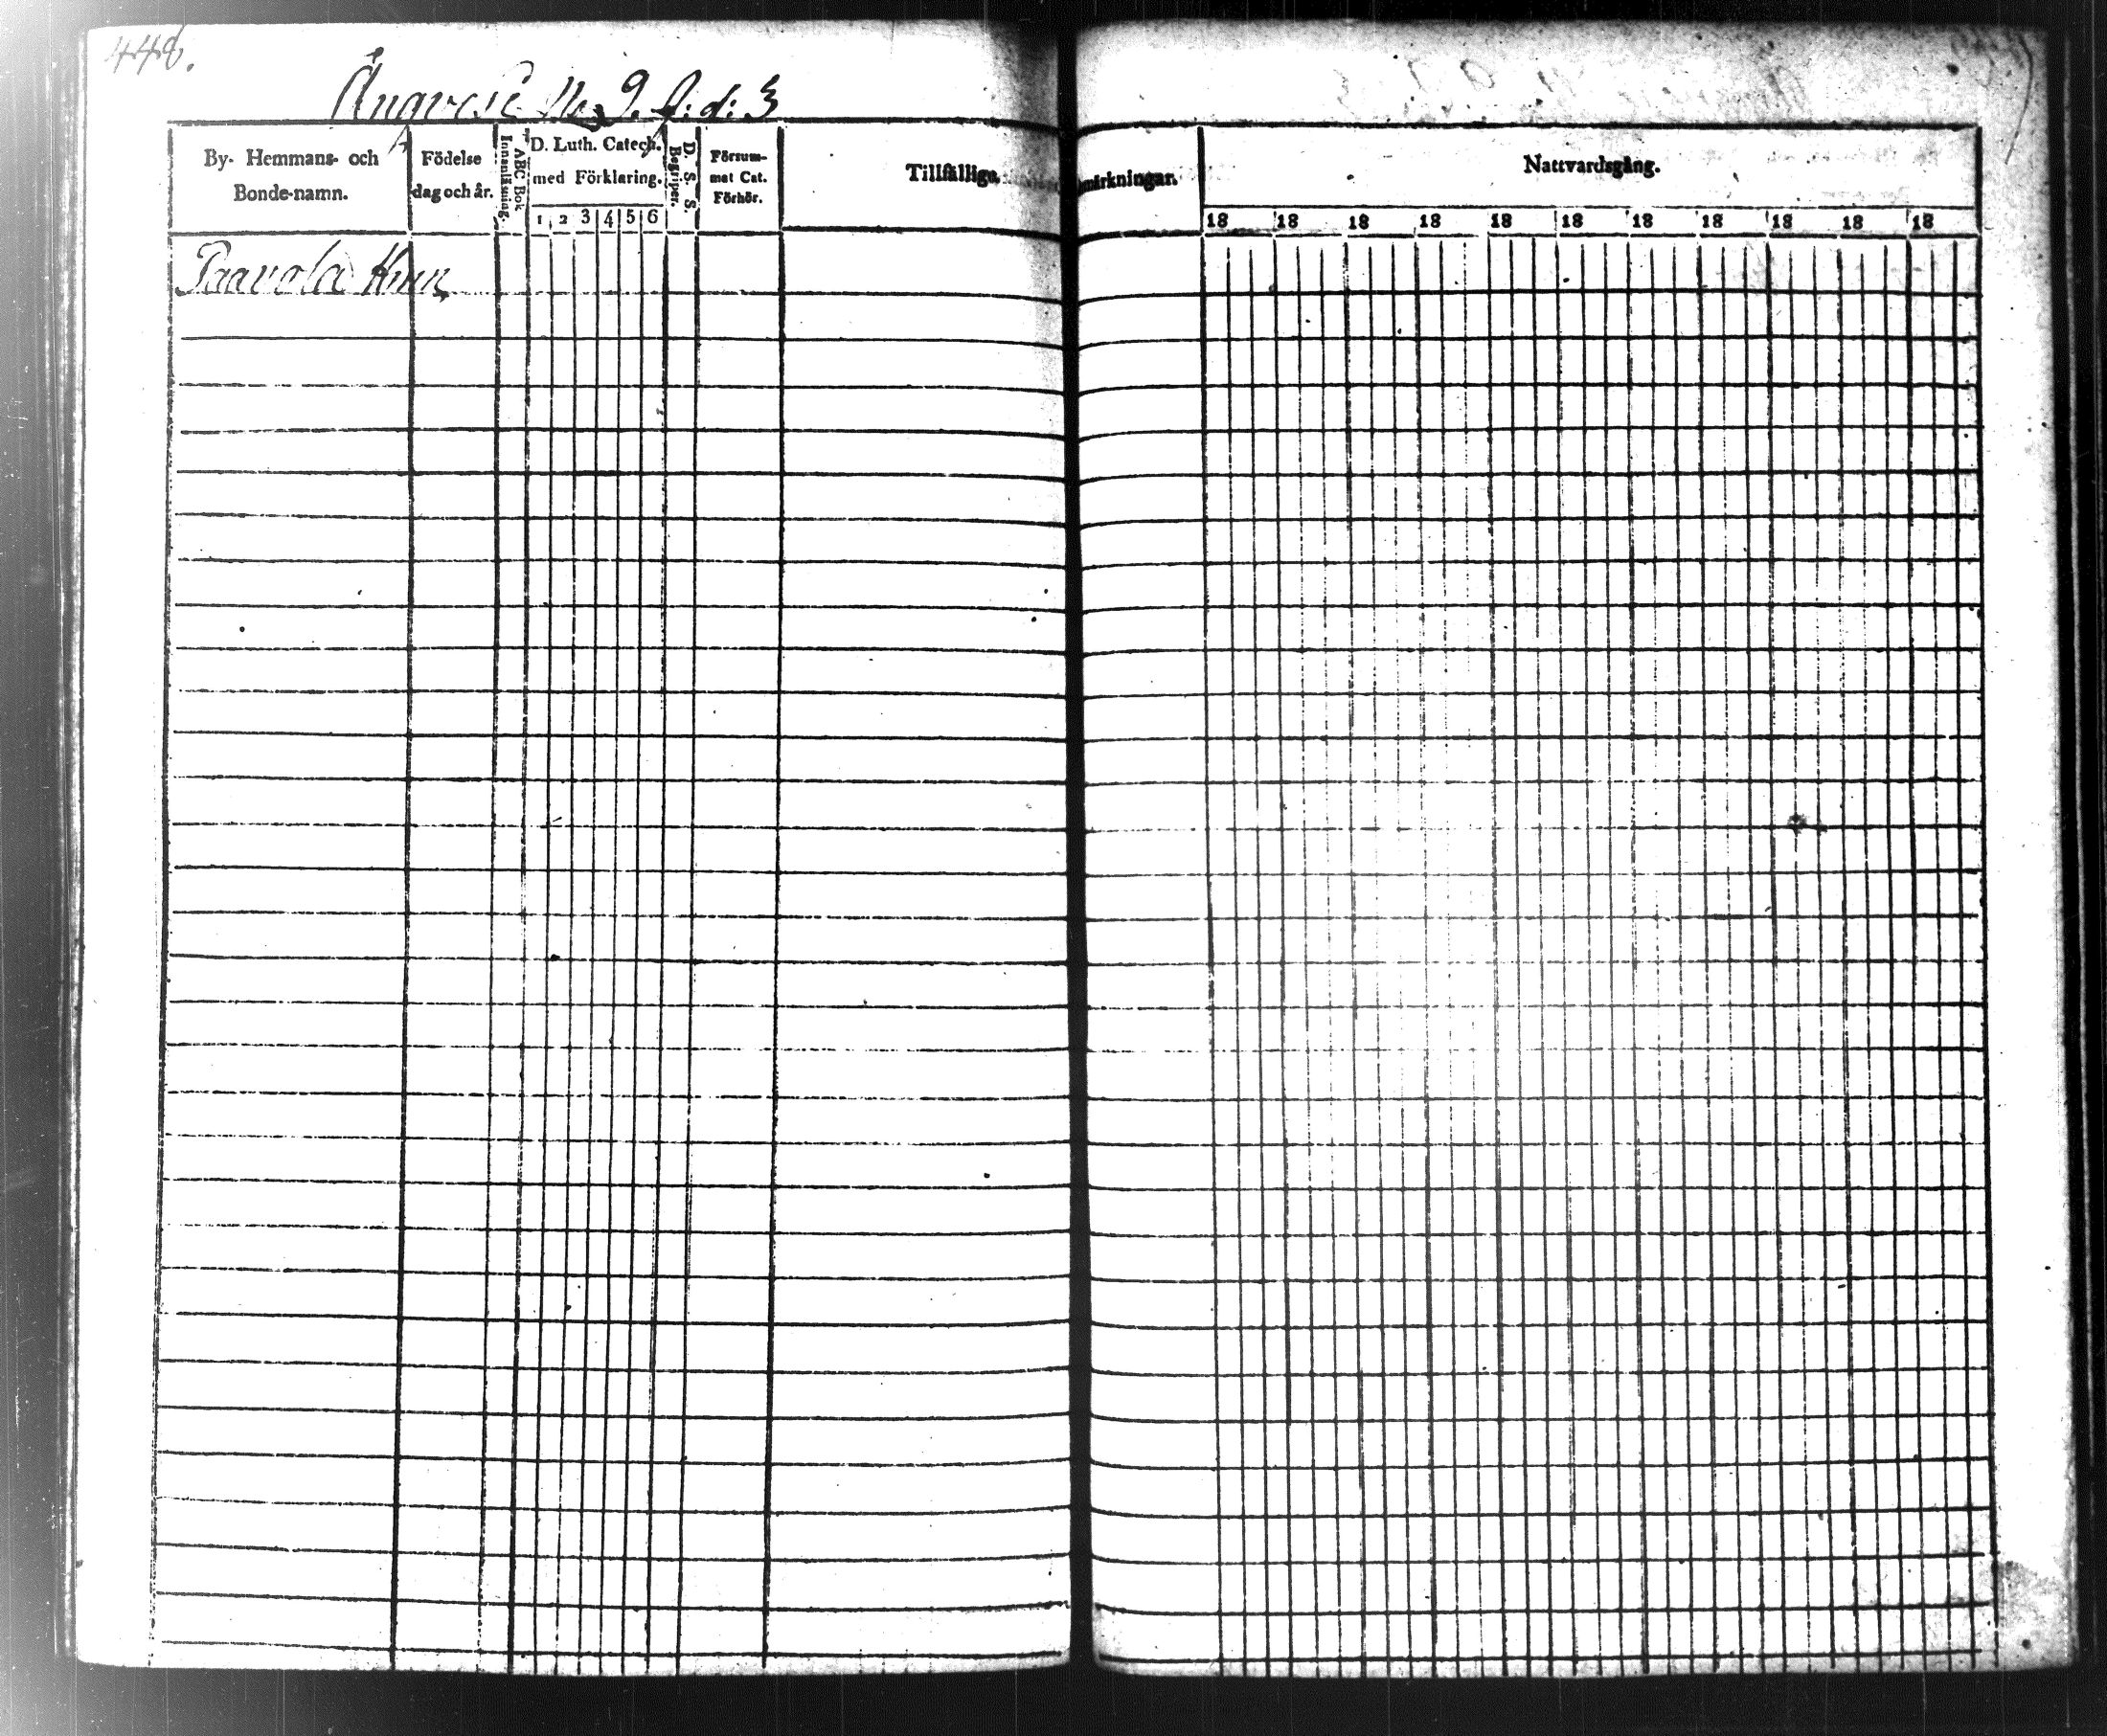 448.
Ångvesi No 9. f: d: 3
By- Hemmans- och
Bonde-namn.
Födelse
dag och år.
ABC Bok
Innanläsning.
D. Luth. Catech.
med Förklaring.
1 2 3 4 5 6
D. S. S.
Begriper.
Försum-
mat Cat.
Förhör.
Tillfällige
Anmärkningar.
Nattvardsgång.
18 18 18 18 18 18 18 18 18 18 18
Paavola